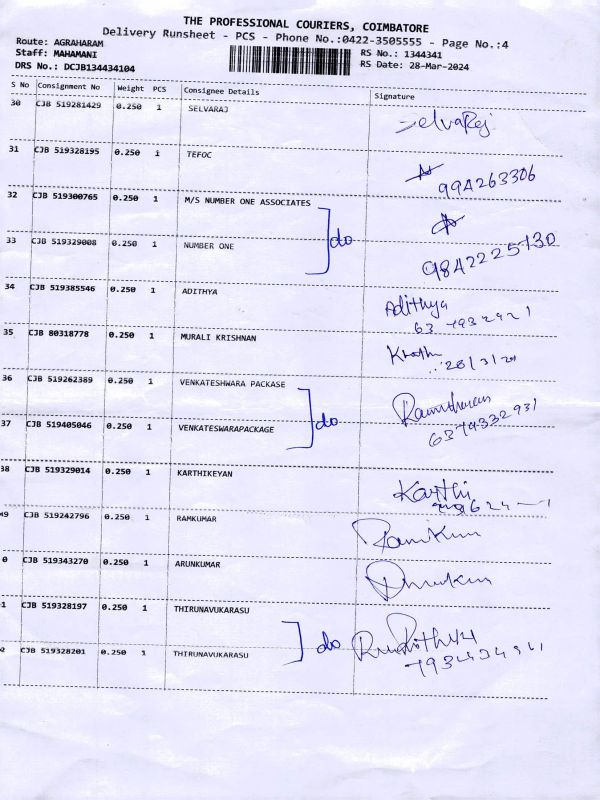 THE PROFESSIONAL COURIERS, COIMBATORE
Delivery Runsheet - PCS - Phone No.:0422-3505555 - Page No.:4
Route: AGRAHARAM
Staff: MAHAMANI RS No.: 1344341
DRS No.: DCJB134434104 RS Date: 28-Mar-2024
S No Consignment No Weight PCS Consignee Details Signature
30 CJB 519281429 0.250 1 SELVARAJ SelvaRaj
31 CJB 519328195 0.250 1 TEFOC
994263306
32 CJB 519300765 0.250 1 M/S NUMBER ONE ASSOCIATES
do
33 CJB 519329008 0.250 1 NUMBER ONE 9842225730
34 CJB 519385546 0.250 1 ADITHYA Adithya
35 CJB 80318778 0.250 1 MURALI KRISHNAN
36 CJB 519262389 0.250 1 VENKATESHWARA PACKASE
do
37 CJB 519405046 0.250 1 VENKATESWARAPACKAGE 6374332931
38 CJB 519329014 0.250 1 KARTHIKEYAN Karthi
49 CJB 519242796 0.250 1 RAMKUMAR Ramkum
0 CJB 519343270 0.250 1 ARUNKUMAR
1 CJB 519328197 0.250 1 THIRUNAVUKARASU
do
2 CJB 519328201 0.250 1 THIRUNAVUKARASU